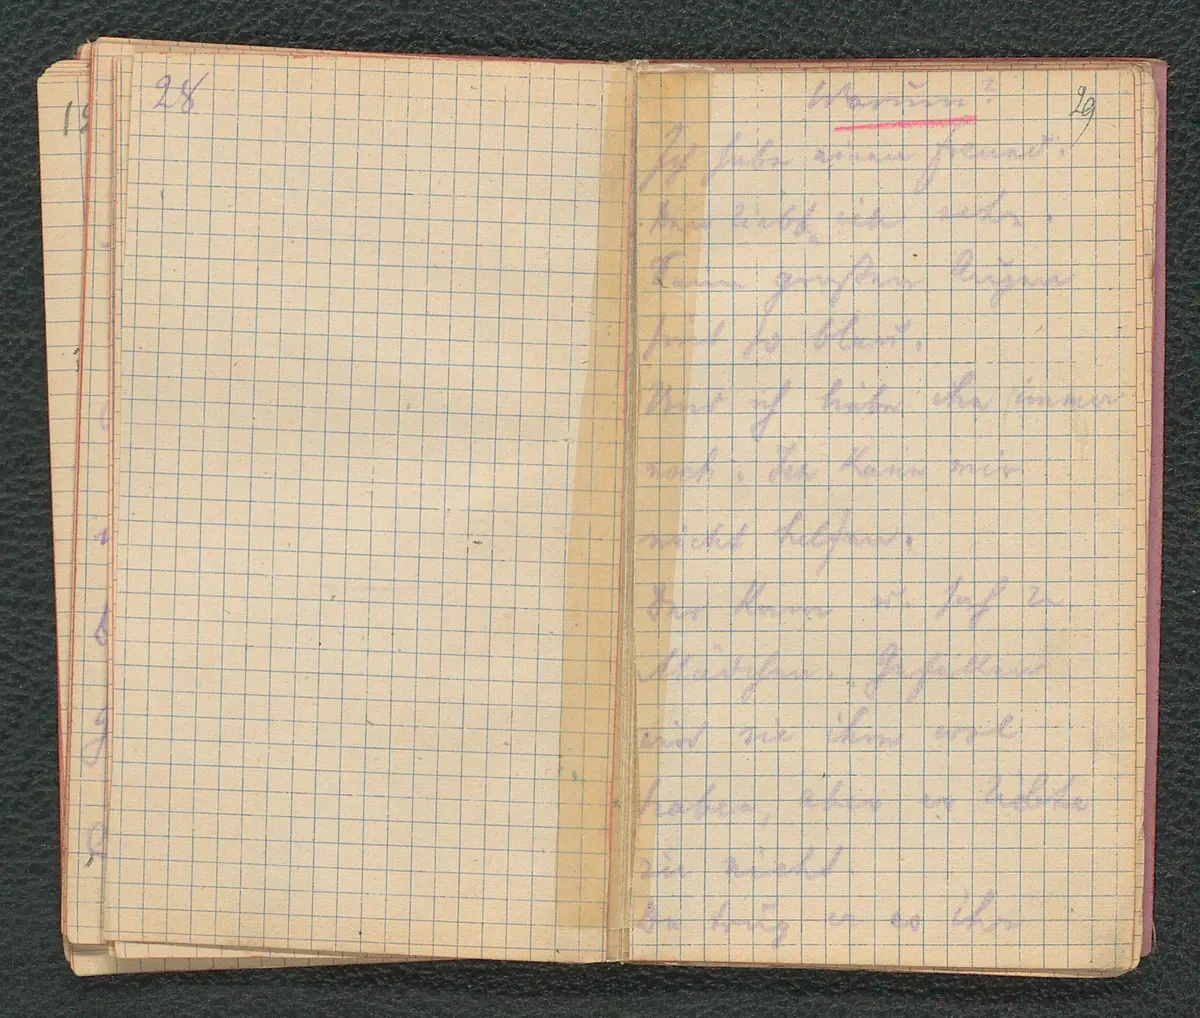 28
29
Warum?
Ich habe einen Freund.
Den liebt ich sehr.
Seine großen Augen
sind so blau.
Und ich liebe ihn immer
noch. Der kann mir
nicht helfen.
Der kam u. sah
Mädchen. Gefallen
wird sie ihm wol
haben, aber er liebte
sie nicht.
Da trug er es ihr